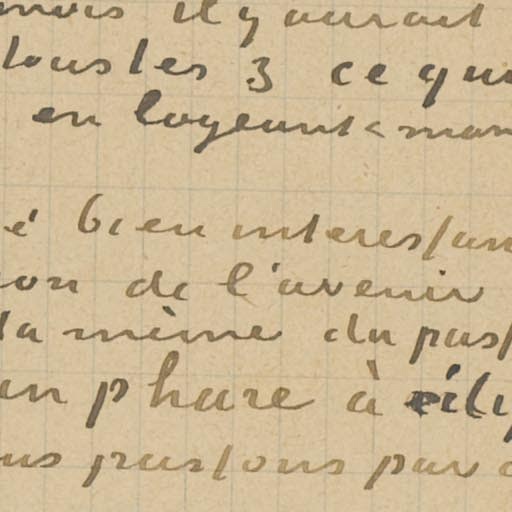 mais il y aurait
tous les 3 ce qui
en logeant
é bien interessan
on de l'avenir
la même du pass
un phare à
us passons par